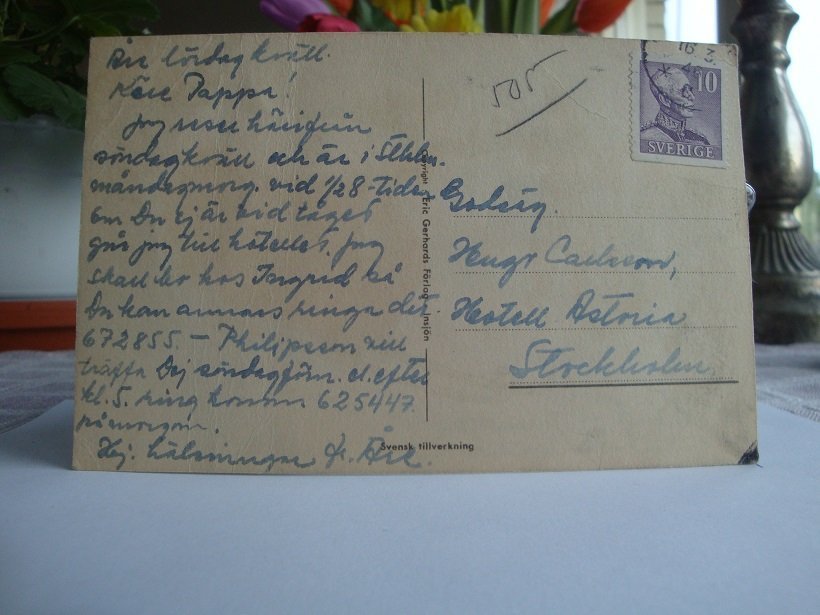 lördag kväll.
Käre Pappa!
Jag reser härifrån
söndagkväll och är i Sthlm.
måndagmorg. vid 1/2 8-tiden
om Du ej är vid tåget
går jag till hotellet. Jag
skall bo hos Ingrid så
Du kan annars ringa dit.
672855. – Philipsson vill
träffa Dej söndag förm. el. efter
kl. 5. ring honom 625447
på morgon.
Hej. hälsningar fr. Åke.
505
16 3.
10
SVERIGE
Hugo Carlsson,
Hotell Astoria
Stockholm
Copyright Eric Gerhards Förlag Insjön
Svensk tillverkning